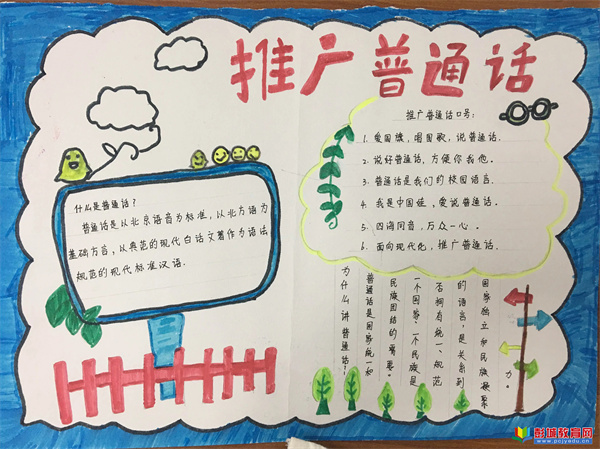 推广普通话
什么是普通话?
普通话是以北京语音为标准,以北方语为
基础方言,以典范的现代白话文著作为语法
规范的现代标准汉语.
推广普通话口号:
1. 爱国旗,唱国歌,说普通话.
2. 说好普通话,方便你我他.
3. 普通话是我们的校园语言.
4. 我是中国娃,爱说普通话.
5. 四海同音,万众一心。
6. 面向现代化,推广普通话.
为什么讲普通话?
普通话是国家统一和
民族团结的需要。
一个国家、一个民族是
否拥有统一、规范
的语言,是关系到
国家独立和民族凝聚
力。
彭城教育网